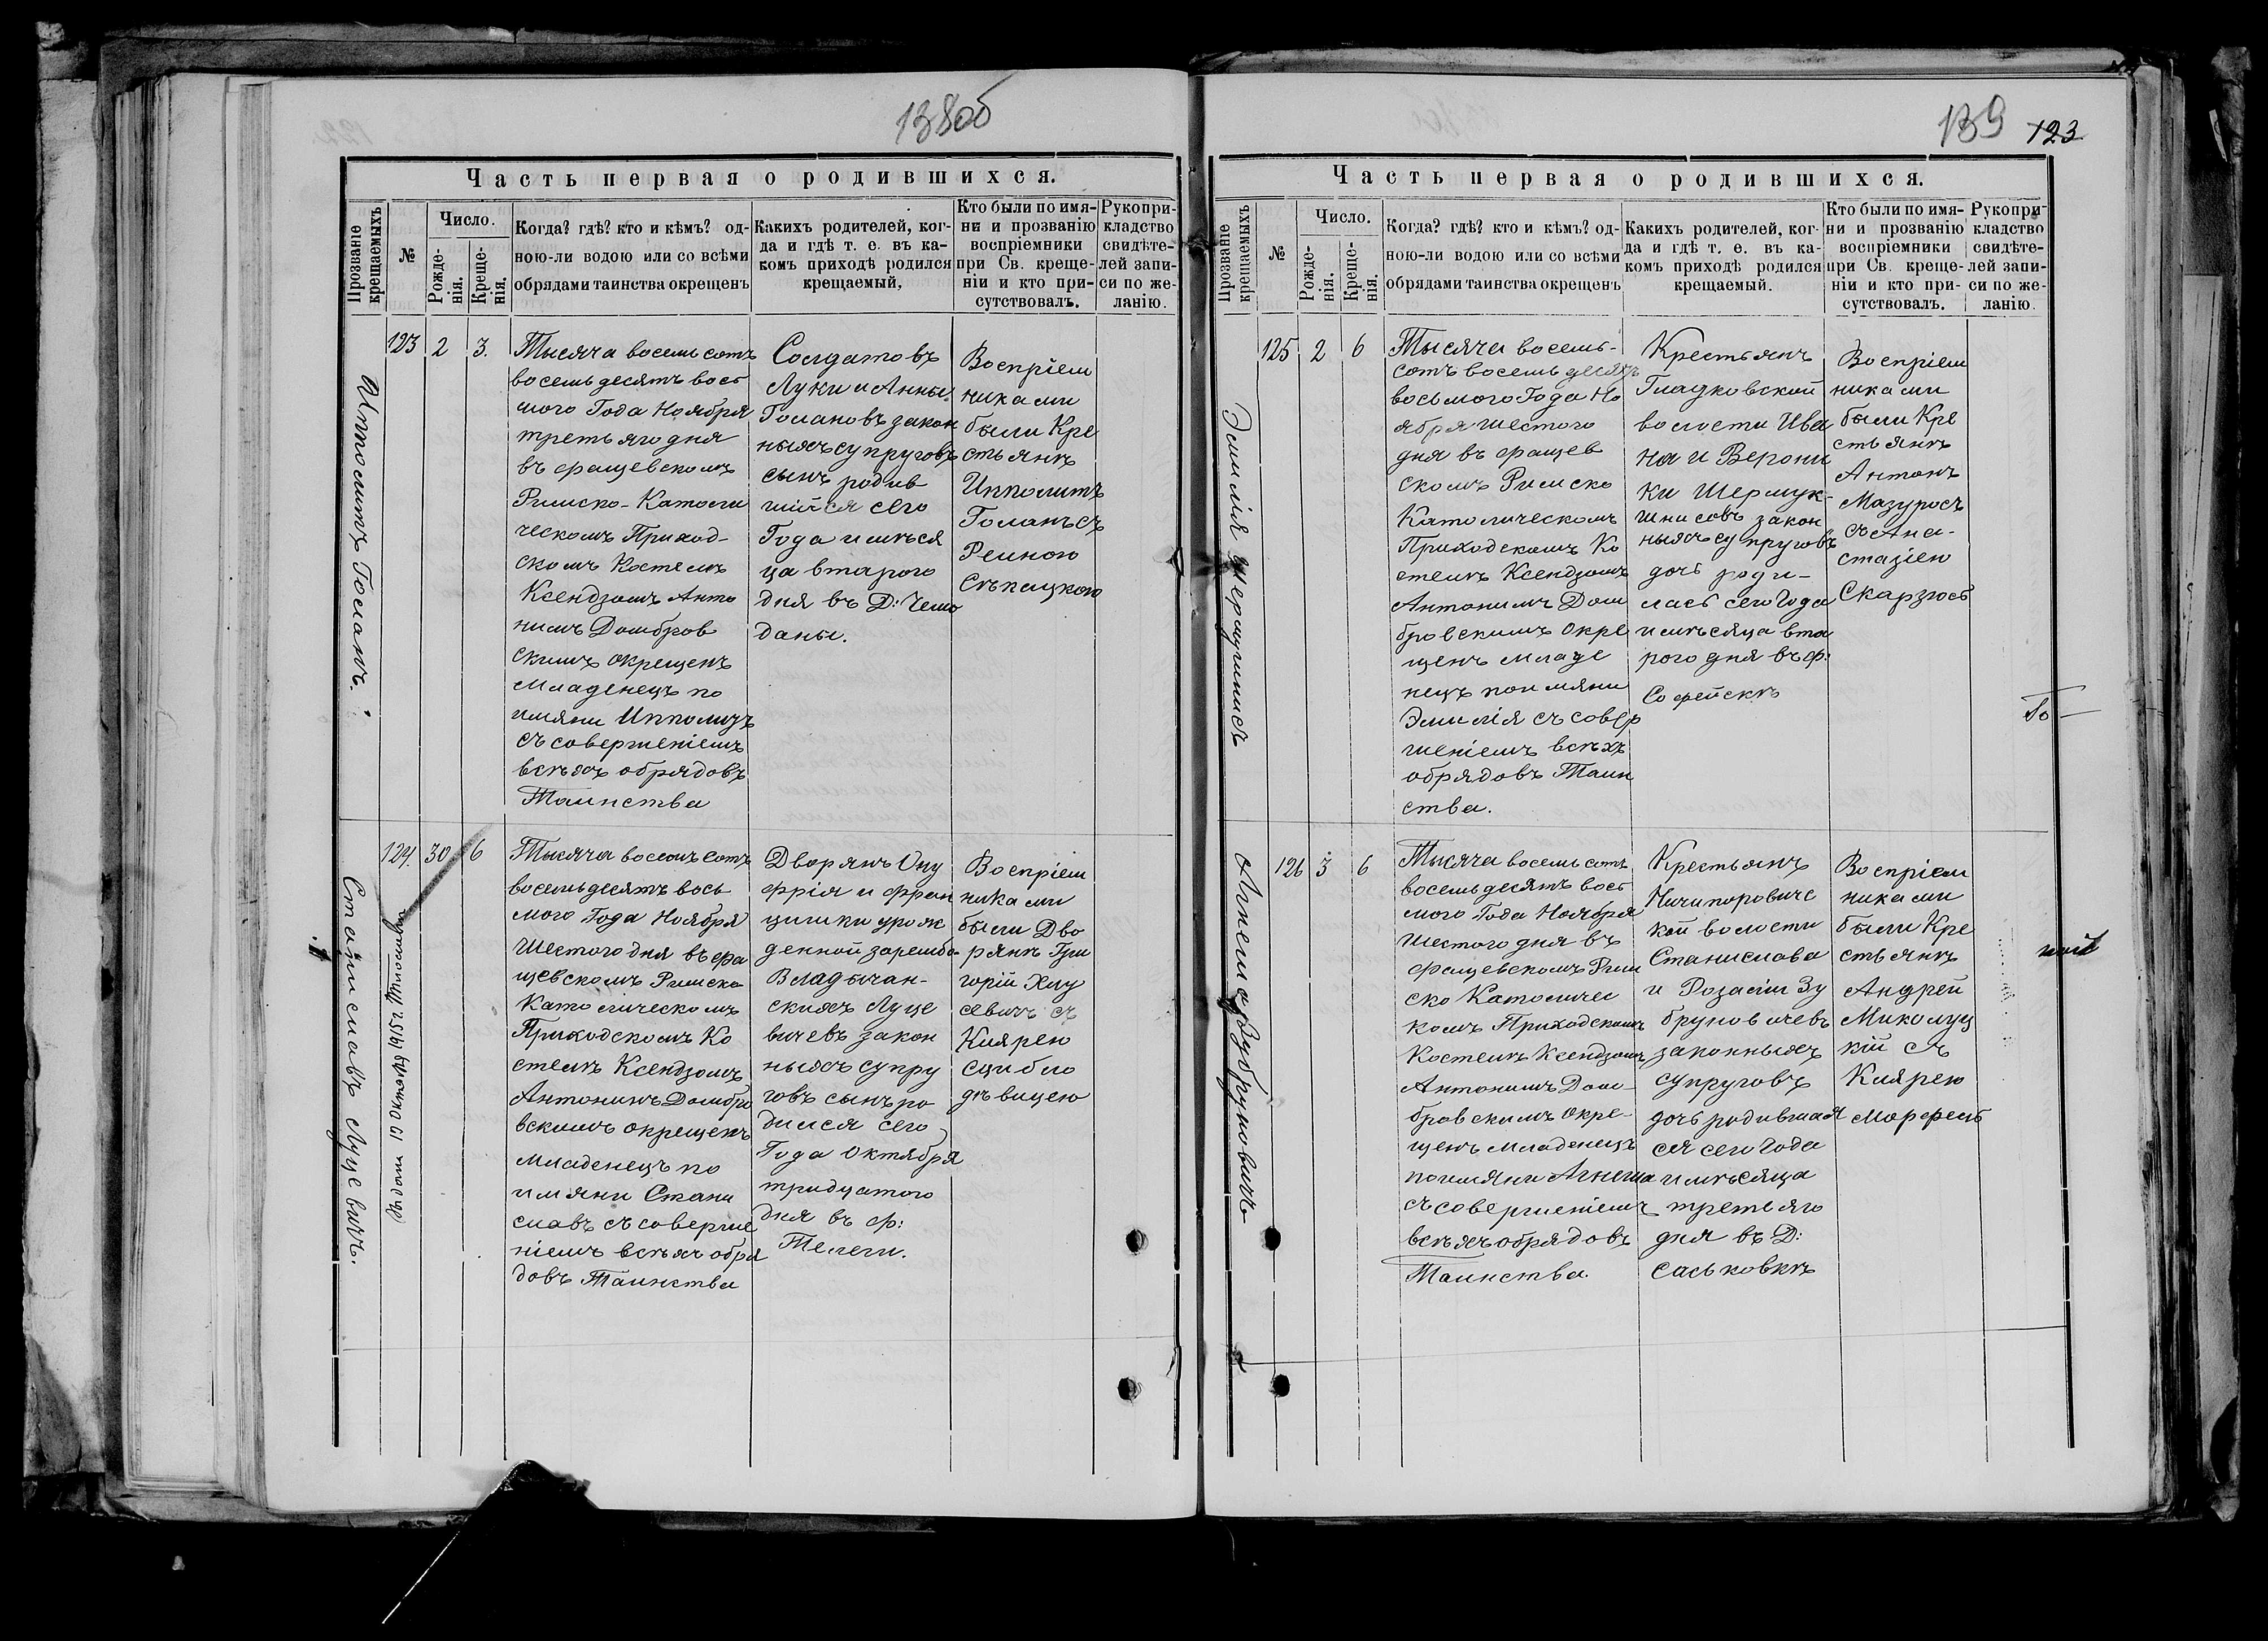 138об
Часть первая о родившихся.
Прозваніе крещаемыхъ
№
Число.
Рожде-
нія.
Креще-
нія.
Когда? гдѣ? кто и кѣмъ? од-
ною-ли водою или со всѣми
обрядами таинства окрещенъ
Какихъ родителей, ког-
да и гдѣ т. е. въ ка-
комъ приходѣ родился
крещаемый.
Кто были по имя-
ни и прозванію
воспріемники
при Св. креще-
ніи и кто при-
сутствовалъ.
Рукопри-
кладство
свидѣте-
лей запи-
си по же-
ланію.
Ипполитъ Голанъ.
123 2 3.
Тысяча восемь сотъ
восемьдесятъ вось
мого Года Ноября
третьяго дня
въ Фащевскомъ
Римско-Католи
ческомъ Приход-
скомъ Костелѣ
Ксендзомъ Анто
нимъ Домбров
скимъ окрещенъ
Младенецъ по
имяни Ипполитъ
съ совершеніемъ
всѣхъ обрядовъ
Таинства
Солдатовъ
Луки и Анны
Голановъ закон
ныхъ супруговъ
сынъ родив
шійся сего
Года и мѣся
ца втарого
дня въ Д: Чемо
даны.
Воспріем
никами
были Кре
стьянѣ
Ипполитъ
Голанъ съ
Региною
Слѣпацкою
Станиславъ Луцевичъ.
124. 30 6
Выдана 10 Октября 1915 г.
Тысяча восемъ сотъ
восемьдесятъ вось
мого Года Ноября
Шестого дня въ Фа
щевскомъ Римско
Католическомъ
Приходскомъ Ко
стелѣ Ксендзомъ
Антонимъ Домбро
вскимъ окрещенъ
младенецъ по
имяни Стани
славъ съ соверше
ніемъ всѣхъ обря
довъ Таинства
Дворянъ Ону
фрія и Фран
цишки урож
денной Заремба
Владычан-
скихъ Луце
вичевъ закон
ныхъ супру
говъ сынъ ро
дился сего
Года Октября
тридцатого
дня въ ф:
Телеги.
Воспріем
никами
были Дво
рянѣ Гри
горій Хлу
севичъ съ
Клярею
Сцибло
дѣвицею
139 123
Часть первая о родившихся.
Прозваніе крещаемыхъ
№
Число.
Рожде-
нія.
Креще-
нія.
Когда? гдѣ? кто и кѣмъ? од-
ною-ли водою или со всѣми
обрядами таинства окрещенъ
Какихъ родителей, ког-
да и гдѣ т. е. въ ка-
комъ приходѣ родился
крещаемый.
Кто были по имя-
ни и прозванію
воспріемники
при Св. креще-
ніи и кто при-
сутствовалъ.
Рукопри-
кладство
свидѣте-
лей запи-
си по же-
ланію.
Эмилія
125 2 6
Тысяча восемь-
сотъ восемьдесятъ
восьмого Года Но
ября шестого
дня въ Фащев
скомъ Римско
Католическомъ
Приходскомъ Ко
стелѣ Ксендзомъ
Антонимъ Дом
бровскимъ окре
щенъ младе
нецъ поимяни
Эмилія съ совер
шеніемъ всѣхъ
обрядовъ Таин
ства.
Крестьянъ
Гладковской
волости Ива
на и Верони
ки Шермук-
шнисовъ закон
ныхъ супруговъ
дочь роди-
лась сего Года
и мѣсяца вта
рого дня въ ф:
Софейскѣ
Воспріем
никами
были Кре
стьянѣ
Антонъ
Мазуросъ
съ Ана-
стазіею
Скарзгось
Агнеша Зубруновичъ
126 3 6
Тысяча восемь сотъ
восемьдесятъ вось
мого Года Ноября
шестого дня въ
Фащевскомъ Рим
ско Католичес
комъ Приходскомъ
Костелѣ Ксендзомъ
Антонимъ Дом-
бровскимъ окре-
щенъ младенецъ
поимяни Агнеша
съ совершеніемъ
всѣхъ обрядовъ
Таинства.
Крестьянъ
Ничипоровичс
кой волости
Станислава
и Розаліи Зу
бруновичевъ
законныхъ
супруговъ
дочь родившая
ся сего Года
и мѣсяца
третьяго
дня въ Д:
Саськовкѣ
Воспріем
никами
были Кре
стьянѣ
Андрей
Миколуц
кій съ
Клярею
Морфель